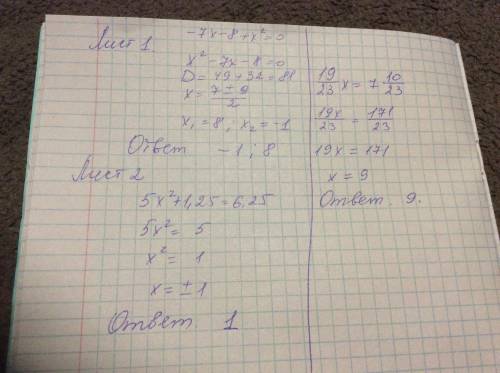 Лист 1.
-7x-8+x²=0
x²-7x-8=0
D=49+32=81
x=\frac{7±9}{2}
x₁=8; x₂=-1
Ответ -1; 8
Лист 2
5x²+1,25=6,25
5x²= 5
x²= 1
x=±1
Ответ 1
\frac{19}{23}x=7\frac{10}{23}
\frac{19x}{23}=\frac{171}{23}
19x=171
x=9
Ответ. 9.